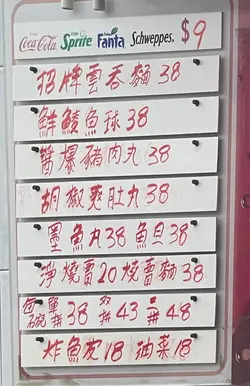 Coca-Cola Sprite Fanta Schweppes. $9
招牌雲吞麵 38
鮮鯪魚球 38
醬爆豬肉丸 38
胡椒爽肚丸 38
墨魚丸38 魚旦38
淨燒賣20 燒賣麵38
每碗 單拼38 双拼43 三拼48
炸魚皮18 油菜18